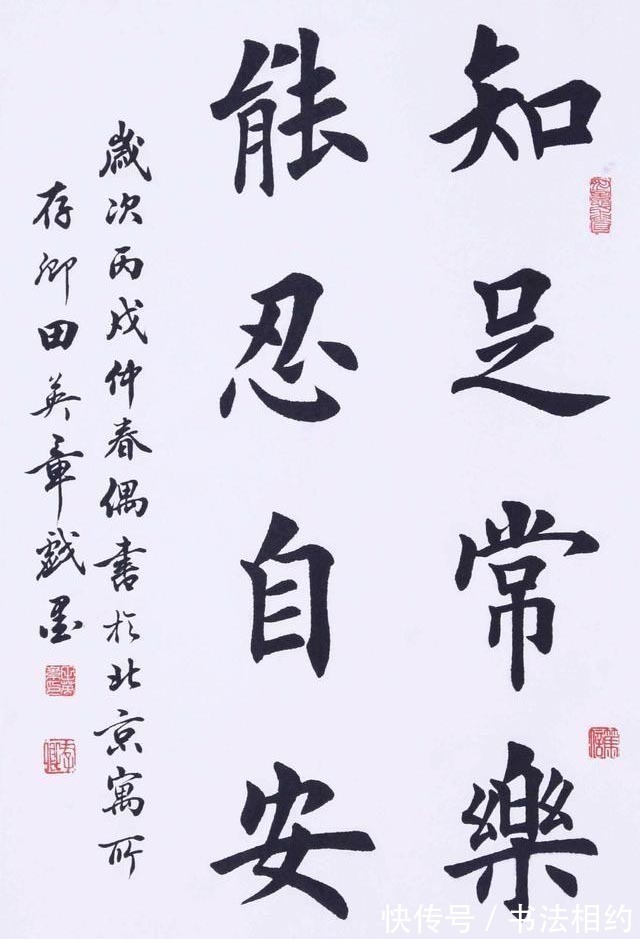 知足常樂
能忍自安
歲次丙戌仲春偶書於北京寓所
存卿田英章戲墨
快传号/书法相约